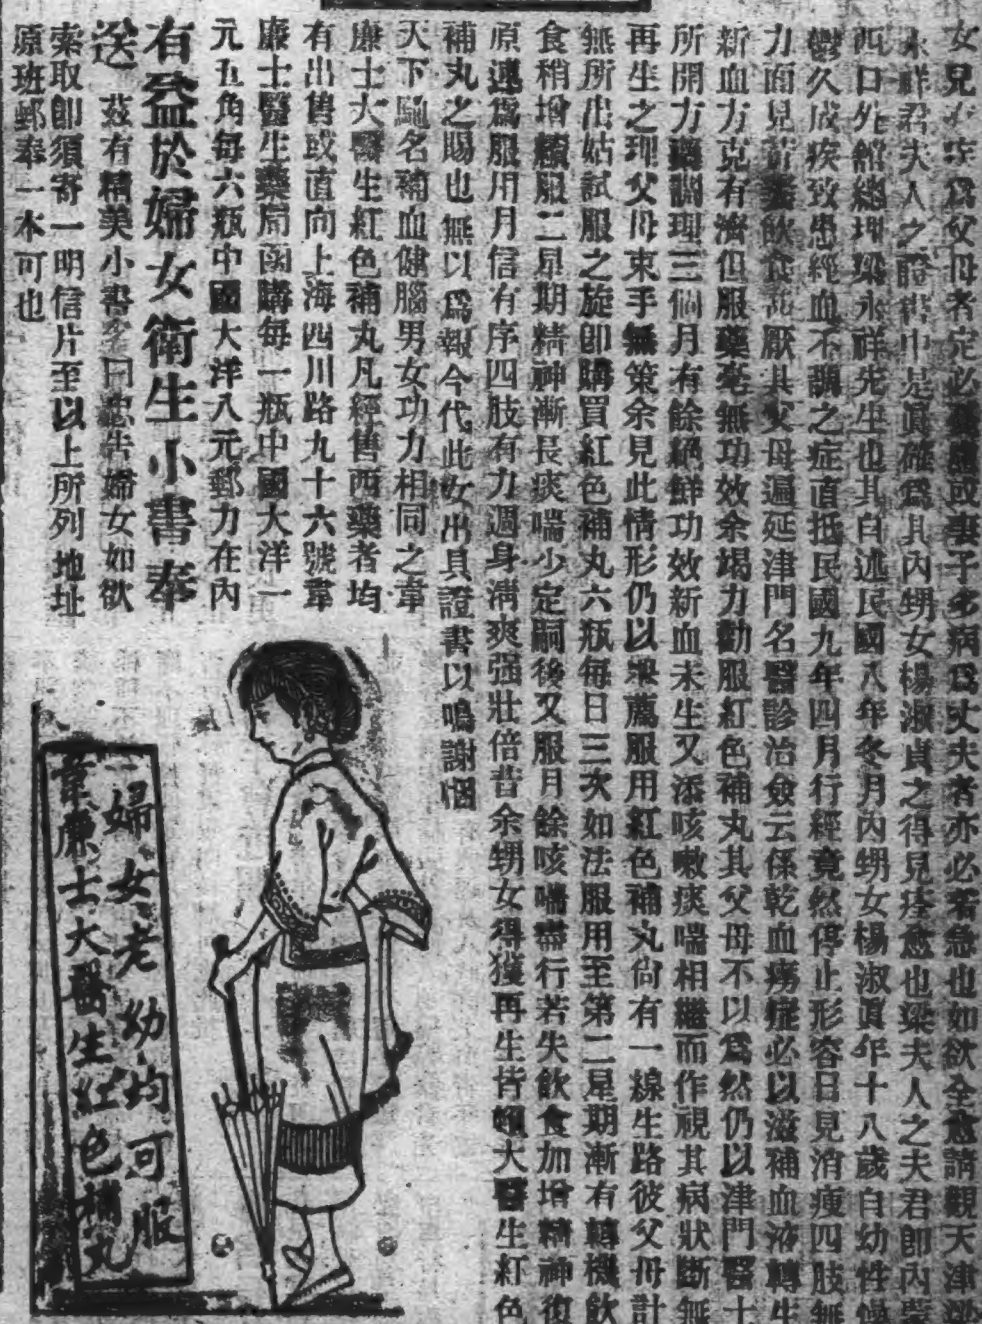 女兒有疾爲父母者定必或妻子多病爲丈夫者亦必着急也如欲全愈請觀天津梁
永祥君夫人之證書中是眞確爲其內甥女楊淑貞之得見痊愈也梁夫人之夫君卽內蒙
西口外館總理梁永祥先生也其自述民國八年冬月內甥女楊淑眞年十八歲自幼性
鬱久成疾致患經血不調之症直抵民國九年四月行經竟然停止形容日見消瘦四肢無
力面見飲食厭其父母遍延津門名醫診治僉云係乾血癆症必以滋補血液轉生
新血方克有濟但服藥毫無功效余竭力勸服紅色補丸其父母不以爲然仍以津門醫士
所開方藥調理三個月有餘絕鮮功效新血未生又添咳嗽痰喘相繼而作視其病狀斷無
再生之理父母束手無策余見此情形仍以果薦服用紅色補丸尙有一線生路彼父母計
無所出姑試服之旋卽購買紅色補丸六瓶每日三次如法服用至第二星期漸有轉機飲
食稍增續服二星期精神漸長痰喘少定嗣後又服月餘咳喘盡行若失飲食加增精神復
原速爲服用月信有序四肢有力週身淸爽强壯倍昔余甥女得獲再生皆賴大醫生紅色
補丸之賜也無以爲報今代此女出具證書以鳴謝悃
天下馳名補血健腦男女功力相同之韋
廉士大醫生紅色補丸凡經售西藥者均
有出售或直向上海四川路九十六號韋
廉士醫生藥局函購每一瓶中國大洋一
元五角每六瓶中國大洋八元郵力在內
有益於婦女衛生小書奉
送　茲有精美小書名曰忠告婦女如欲
索取卽須寄一明信片至以上所列地址
原班郵奉一本可也
婦女老幼均可服
韋廉士大醫生紅色補丸